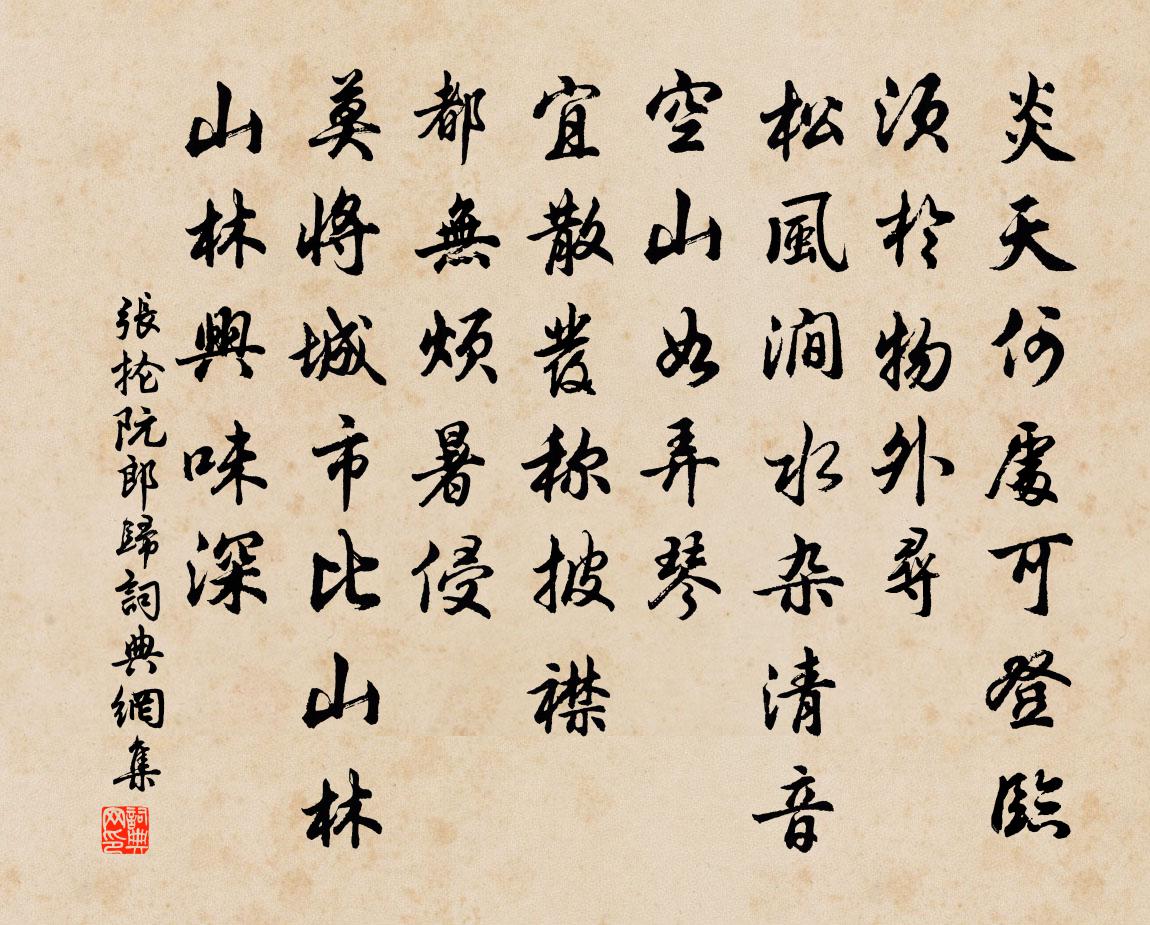 炎天何處可登臨
須於物外尋
松風澗水杂清音
空山如弄琴
宜散發称披襟
都無煩暑侵
莫將城市比山林
山林興味深
張掄阮郎歸詞典網集
詞典网印